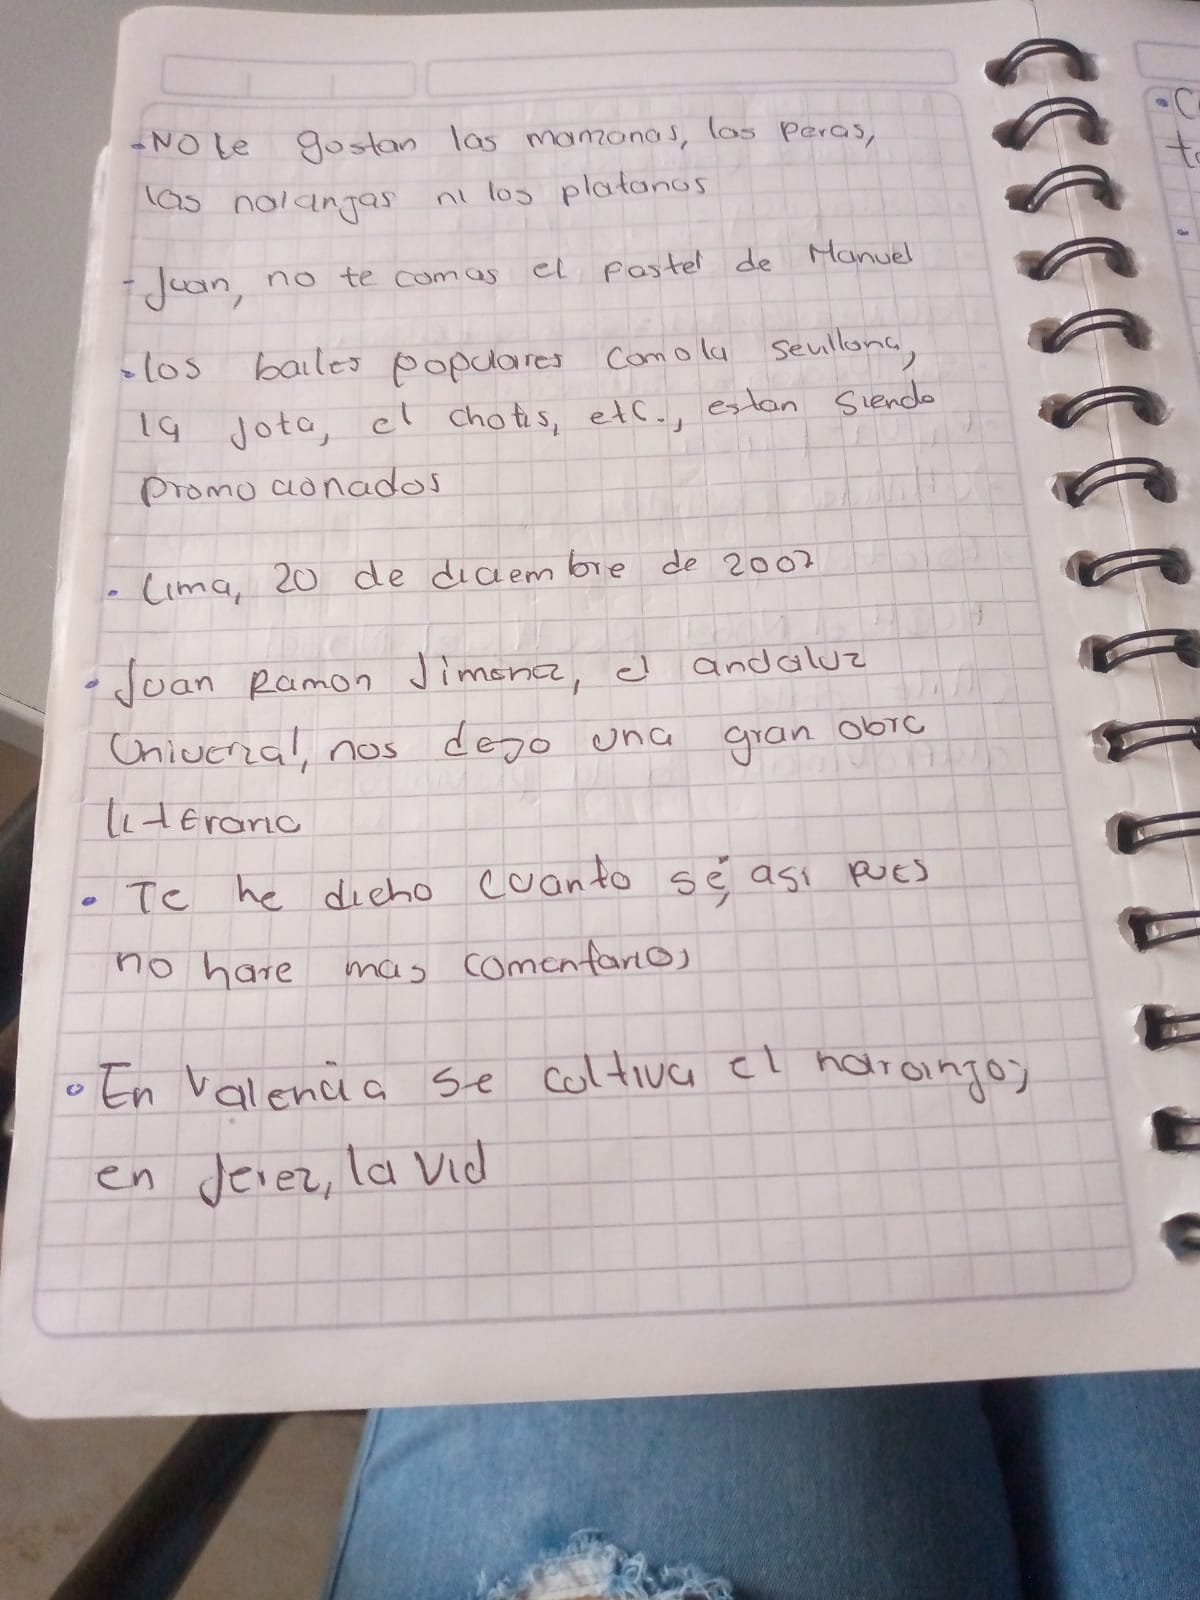 - No le gustan las manzanas, las peras,
las naranjas ni los platanos
- Juan, no te comas el pastel de Manuel
• los bailes populares como la sevillana,
la jota, el chotis, etc., estan siendo
promocionados
• Lima, 20 de diciembre de 2007
• Juan Ramon Jimenez, el andaluz
Universal, nos dejo una gran obra
literaria
• Te he dicho cuanto sé, asi pues
no hare mas comentarios
• En Valencia se cultiva el naranjo;
en Jerez, la vid